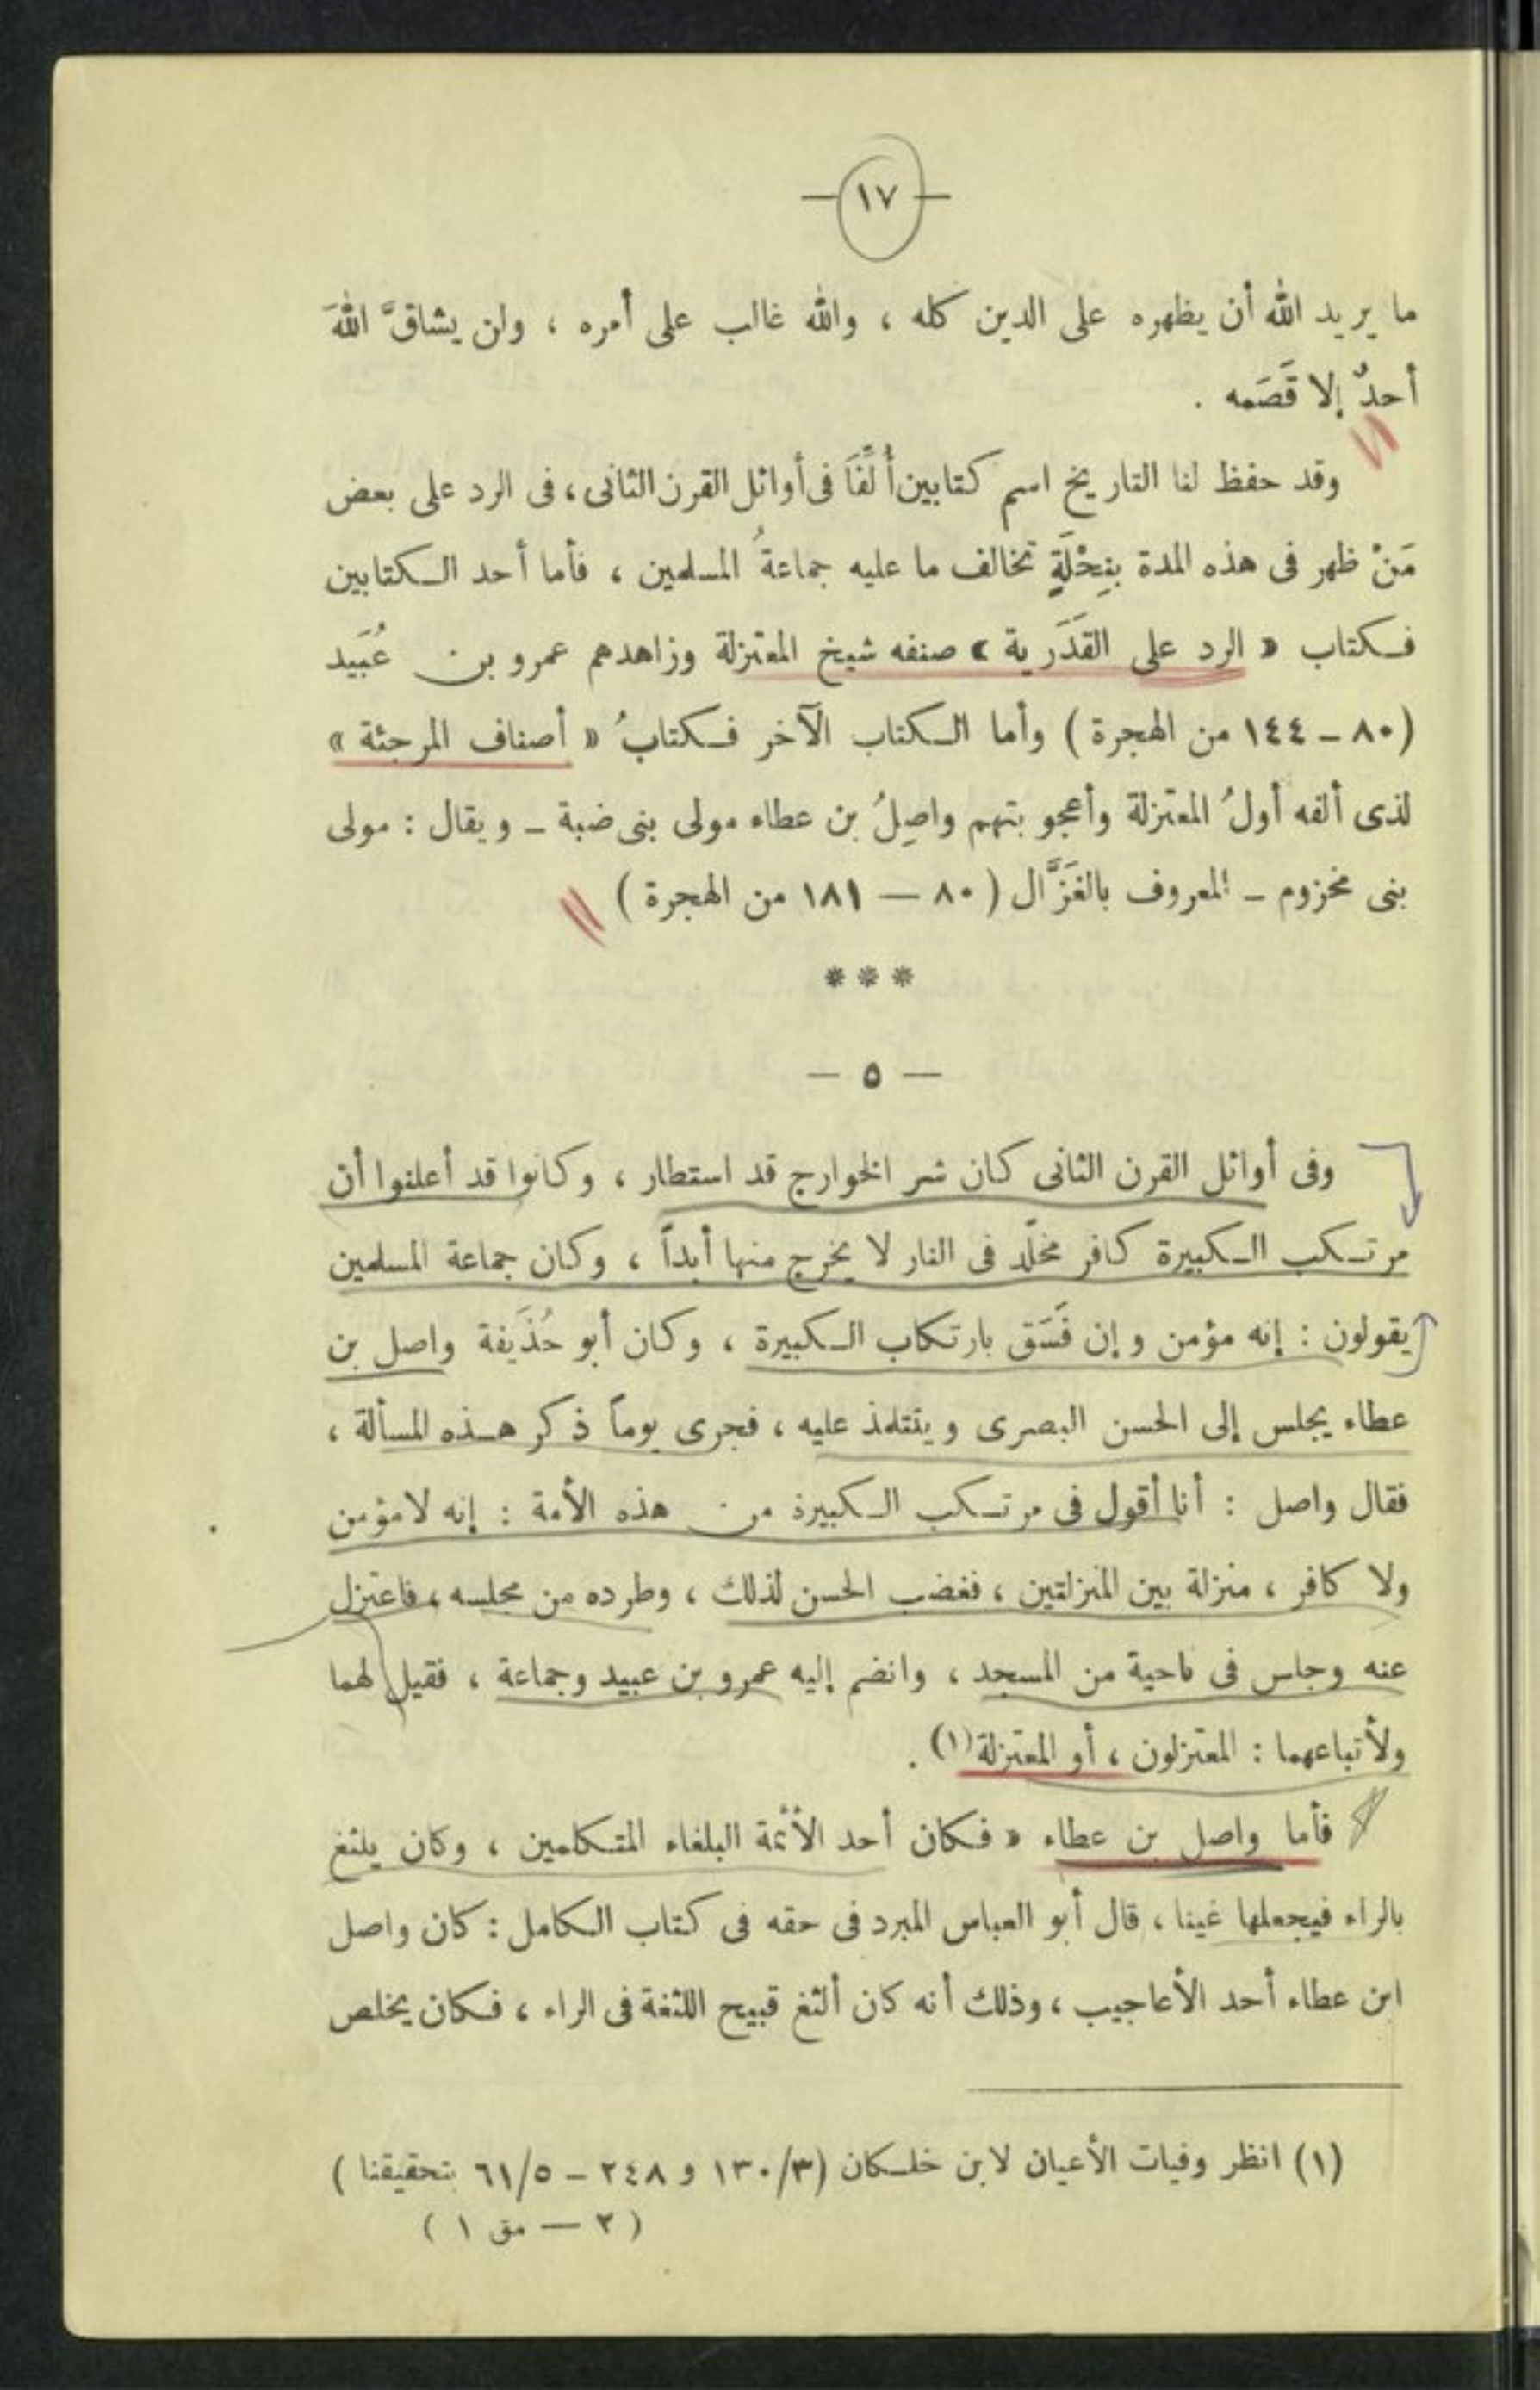 — ١٧ —
ما يريد الله أن يظهره على الدين كله ، والله غالب على أمره ، ولن يشاقَّ اللهَ
أحدٌ إلا قَصَمه .
وقد حفظ لنا التاريخ اسم كتابين أُلِّفَا فى أوائل القرن الثانى ، فى الرد على بعض
مَنْ ظهر فى هذه المدة بنِحْلَةٍ تخالف ما عليه جماعةُ المسلمين ، فأما أحد الكتابين
فكتاب « الرد على القَدَرية » صنفه شيخ المعتزلة وزاهدهم عمرو بن عُبَيد
(٨٠ – ١٤٤ من الهجرة ) وأما الكتاب الآخر فكتابُ « أصناف المرجئة »
لذى ألفه أولُ المعتزلة وأعجوبتهم واصِلُ بن عطاء مولى بنى ضبة – ويقال : مولى
بنى مخزوم – المعروف بالغَزَّال ( ٨٠ — ١٨١ من الهجرة )
* * *
— ٥ —
وفى أوائل القرن الثانى كان شر الخوارج قد استطار ، وكانوا قد أعلنوا أن
مرتكب الكبيرة كافر مخلّد فى النار لا يخرج منها أبداً ، وكان جماعة المسلمين
يقولون : إنه مؤمن وإن فَسَق بارتكاب الكبيرة ، وكان أبو حُذَيفة واصل بن
عطاء يجلس إلى الحسن البصرى ويتتلمذ عليه ، فجرى يوماً ذكر هذه المسألة ،
فقال واصل : أنا أقول فى مرتكب الكبيرة من هذه الأمة : إنه لا مؤمن
ولا كافر ، منزلة بين المنزلتين ، فغضب الحسن لذلك ، وطرده من مجلسه ، فاعتزل
عنه وجلس فى ناحية من المسجد ، وانضم إليه عمرو بن عبيد وجماعة ، فقيل لهما
ولأتباعهما : المعتزلون ، أو المعتزلة (١) .
فأما واصل بن عطاء « فكان أحد الأئمة البلغاء المتكلمين ، وكان يلثغ
بالراء فيجعلها غينا ، قال أبو العباس المبرد فى حقه فى كتاب الكامل : كان واصل
ابن عطاء أحد الأعاجيب ، وذلك أنه كان ألثغ قبيح اللثغة فى الراء ، فكان يخلص
(١) انظر وفيات الأعيان لابن خلكان (٣/١٣٠ و ٢٤٨ – ٥/٦١ بتحقيقنا )
( ٢ — مق ١ )